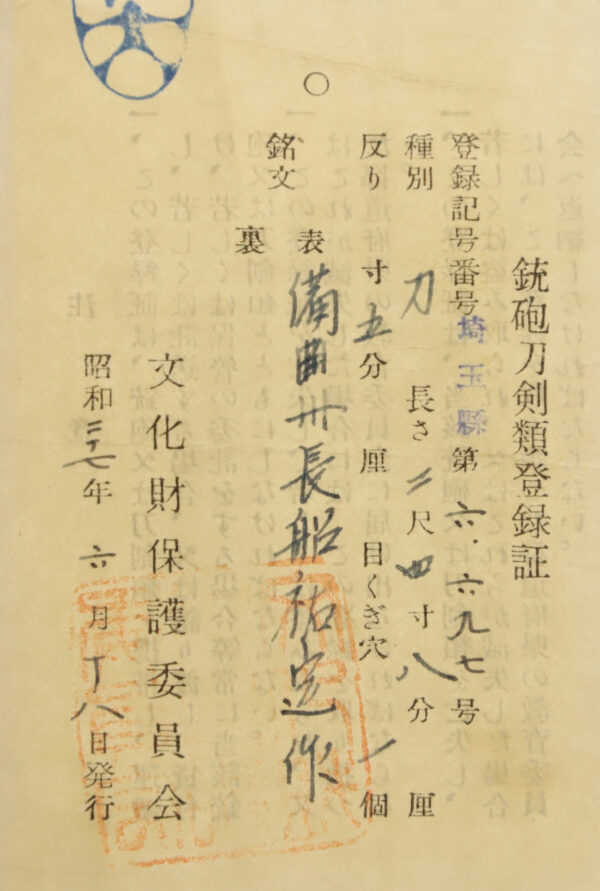 銃砲刀剣類登録証
登録記号番号埼玉縣第六.六九七号
種別 刀 長さ二尺四寸八分 厘
反り 寸五分 厘 目くぎ穴一個
銘文 表 備州長船祐定作
裏
文化財保護委員会
昭和三十七年六月十八日発行